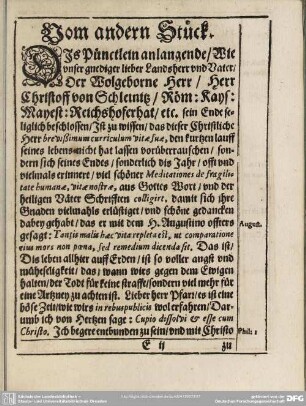 Vom andern Stück.
DIs Pünctlein anlangende/ Wie
vnser gnediger lieber Landsherr vnd Vater/
Der Wolgeborne Herr / Herr
Christoff von Schleinitz / Röm: Kays:
Mayest: Reichshoferhat/ etc. sein Ende se-
liglich beschlossen/ Ist zu wissen/ das dieser Christliche
Herr brevissimum curriculum vitæ suæ, den kurtzen lauff
seines lebens nicht hat lassen vorüberrauschen/ son-
dern sich seines Endes/ sonderlich dis Jahr/ offt vnd
vielmals erinnert/ viel schöner Meditationes de fragili-
tate humanæ, vitæ nostræ, aus Gottes Wort/ vnd der
heiligen Väter Schrifften colligirt, damit sich ihre
Gnaden vielmahls erlüstiget/ vnd schöne gedancken
dabey gehabt/ das er mit dem H. Augustino offters
gesagt: Tantis malis hæc vita repleta est, ut comparatione
August.
ejus mors non pœna, sed remedium dicenda sit. Das ist/
Dis leben allhier auff Erden/ ist so voller angst vnd
müheseligkeit/ das/ wann wirs gegen dem Ewigen
halten/ der Todt für keine straffe/ sondern viel mehr für
eine Artzney zu achten ist. Lieber Herr Pfarr/ es ist eine
böse Zeit/ wie wirs in rebus publicis wol erfahren/ Dar-
umb ich von Hertzen sage: Cupio dissolvi & esse cum
Christo, Ich begere entbunden zu sein/ vnd mit Christo
Phil: 1
E ij
zu